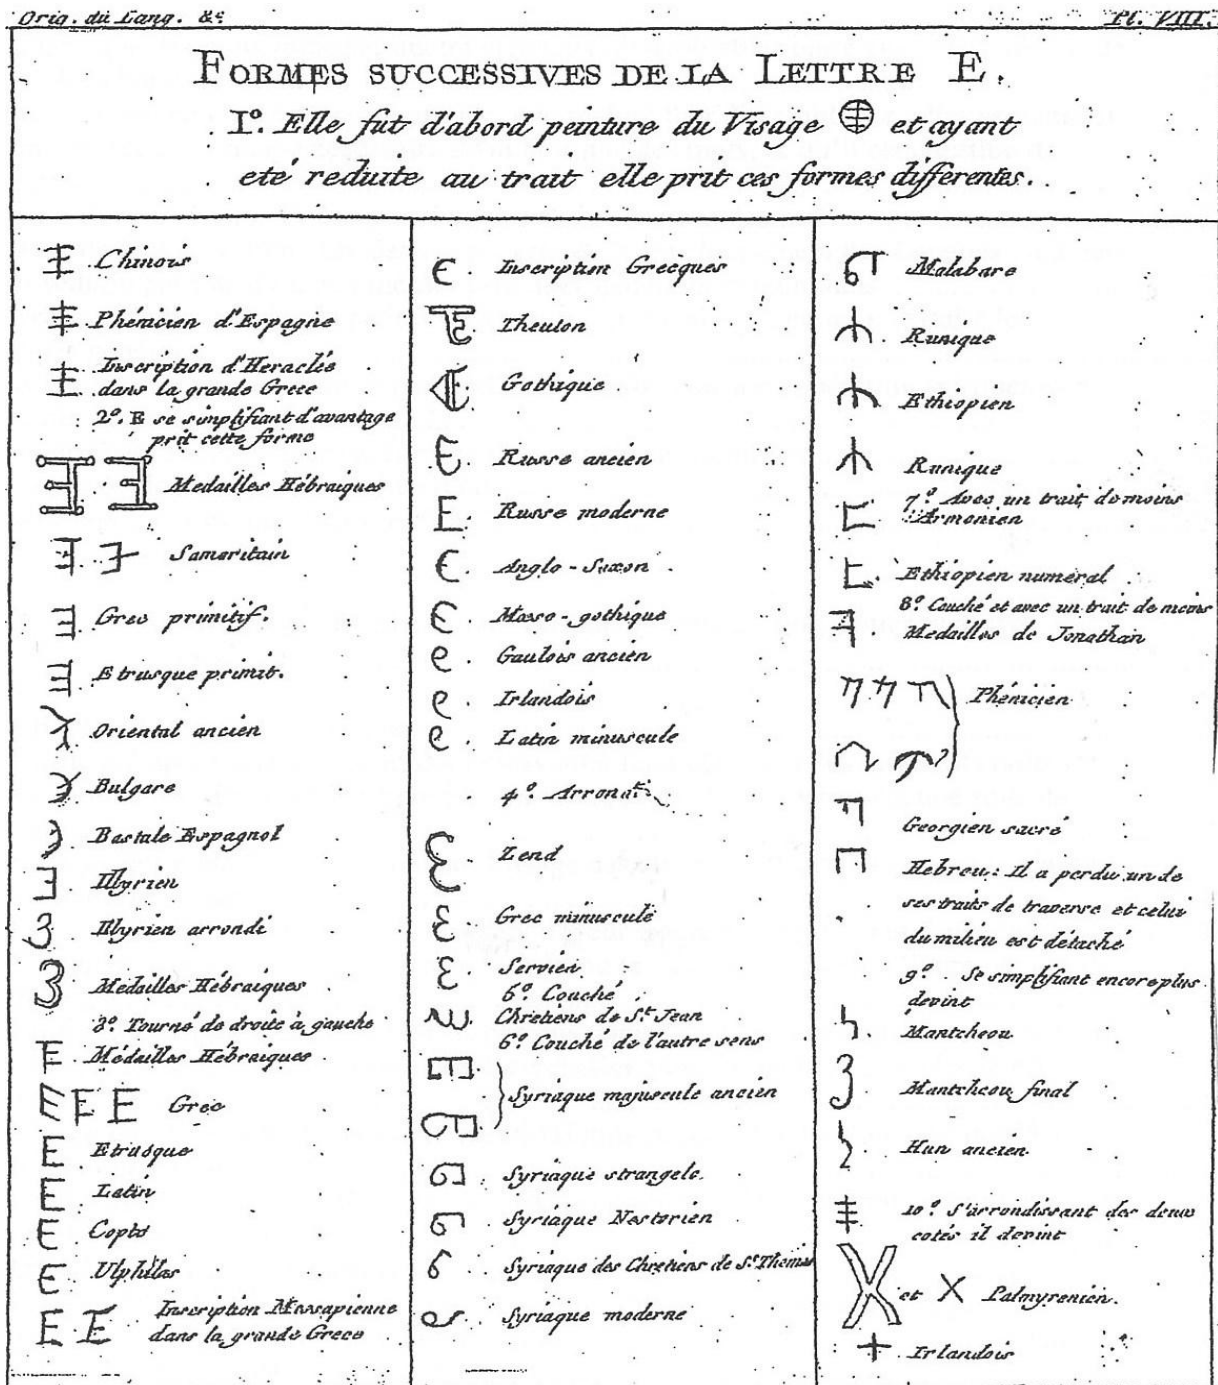 Orig. du Lang. &c
Pl. VIII.
FORMES SUCCESSIVES DE LA LETTRE E.
I°. Elle fut d'abord peinture du Visage et ayant
eté reduite au trait elle prit ces formes différentes.
Chinois
Phénicien d'Espagne
Inscription d'Heraclée
dans la grande Grece
2°. E se simplifiant d'avantage
prit cette forme
Medailles Hébraiques
Samaritain
Grec primitif.
Etrusque primit.
Oriental ancien
Bulgare
Bastule Espagnol
Illyrien
Illyrien arrondi
Medailles Hébraiques
3°. Tourné de droite à gauche
Médailles Hébraiques
Grec
Etrusque
Latin
Copte
Ulphilas
Inscription Messapienne
dans la grande Grece
Inscription Grecques
Theuton
Gothique
Russe ancien
Russe moderne
Anglo-Saxon
Mœso-gothique
Gaulois ancien
Irlandois
Latin minuscule
4°. Arrondi
Zend
Grec minuscule
Servien
6°. Couché
Chretiens de St. Jean
6°. Couché de l'autre sens
Syriaque majuscule ancien
Syriaque strangele
Syriaque Nestorien
Syriaque des Chretiens de St. Thomas
Syriaque moderne
Malabare
Runique
Ethiopien
Runique
7°. Avec un trait de moins
Armenien
Ethiopien numeral
8°. Couché et avec un trait de moins
Medailles de Jonathan
Phénicien
Georgien sacré
Hebreu: il a perdu un de
ses traits de traverse et celui
du milieu est détaché
9°. Se simplifiant encore plus
devint
Mantcheou
Mantcheou final
Hun ancien
10°. S'arrondissant des deux
cotés il devint
et X Palmyrenien.
Irlandois